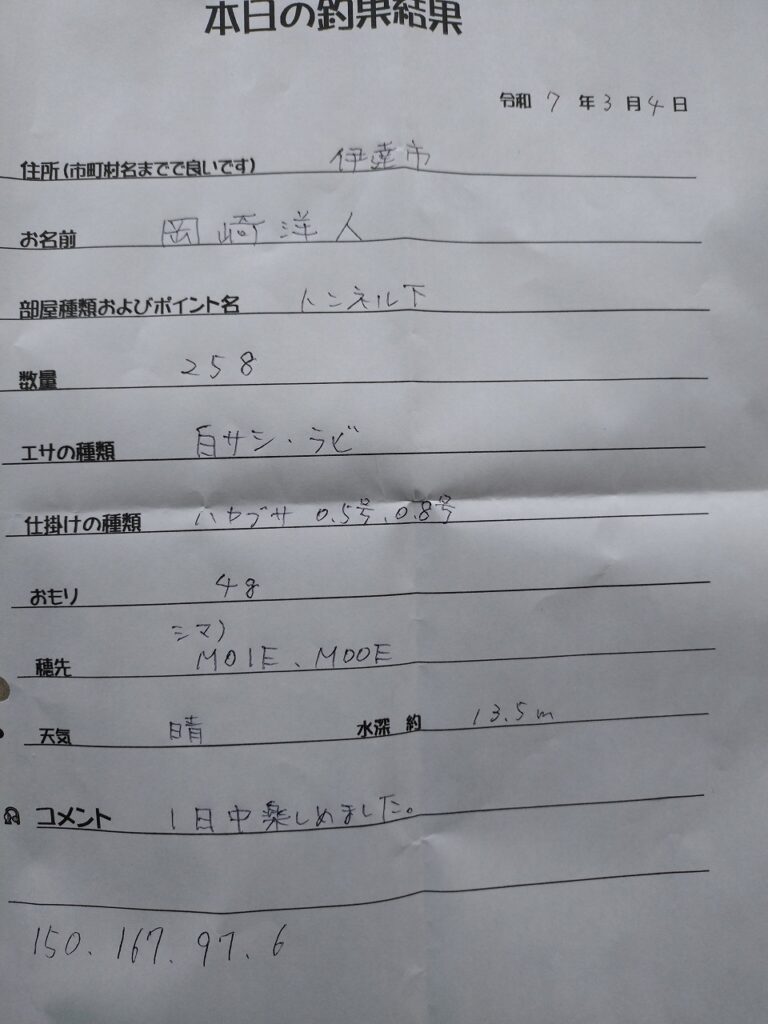 本日の釣果結果
令和 7 年 3 月 4 日
住所(市町村名までで良いです) 伊達市
お名前 岡崎洋人
部屋種類およびポイント名 トンネル下
数量 258
エサの種類 白サシ・ラビ
仕掛けの種類 ハヤブサ 0.5号、0.8号
おもり 4g
シマノ
穂先 M01E、M00E
天気 晴 水深 約 13.5m
コメント 1日中楽しめました。
150.167.97.6